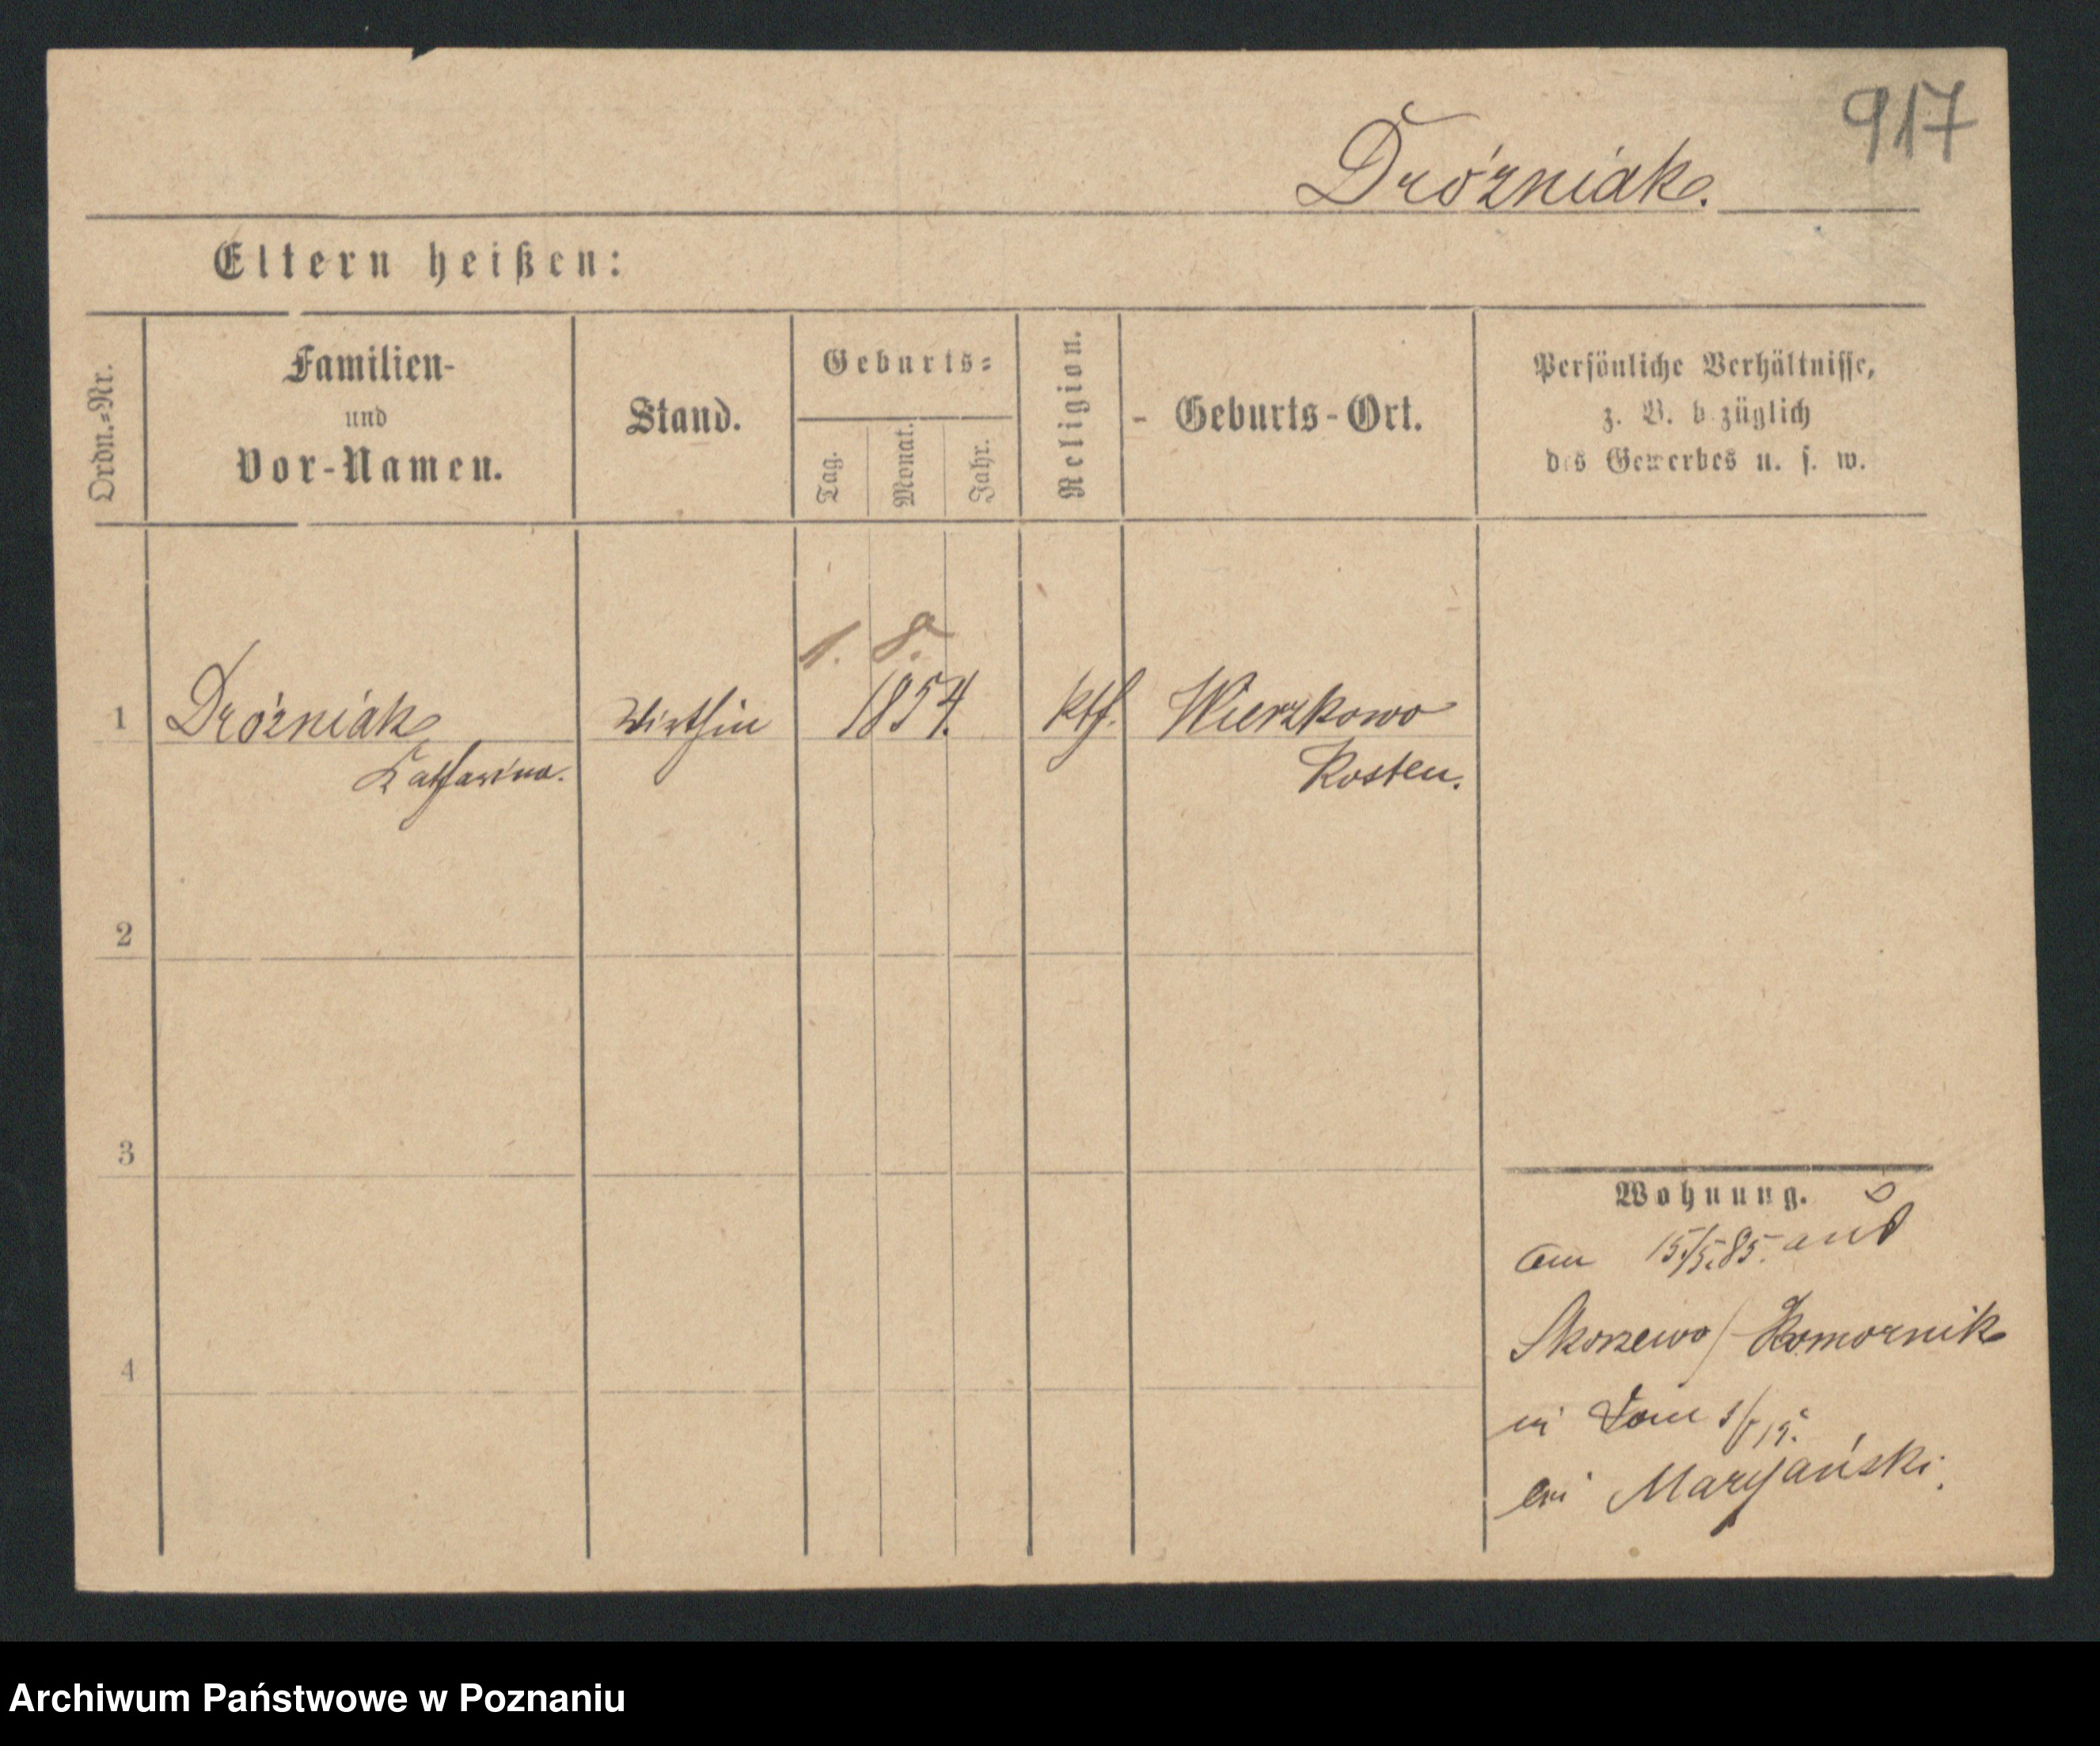 917
Dróżniak.
Eltern heißen:
Ordn.-Nr.
Familien-
und
Vor-Namen.
Stand.
Geburts-
Tag.
Monat.
Jahr.
Religion.
Geburts-Ort.
Persönliche Verhältnisse,
z. B. bezüglich
des Gewerbes u. s. w.
1. 8.
1 Dróżniak Wirthin 1854. kth. Wierzkowo
Katharina. Kosten.
2
3
4
Wohnung.
am 15./5.85. aus
Skorzewo / Komornik
Maryański.
Archiwum Państwowe w Poznaniu